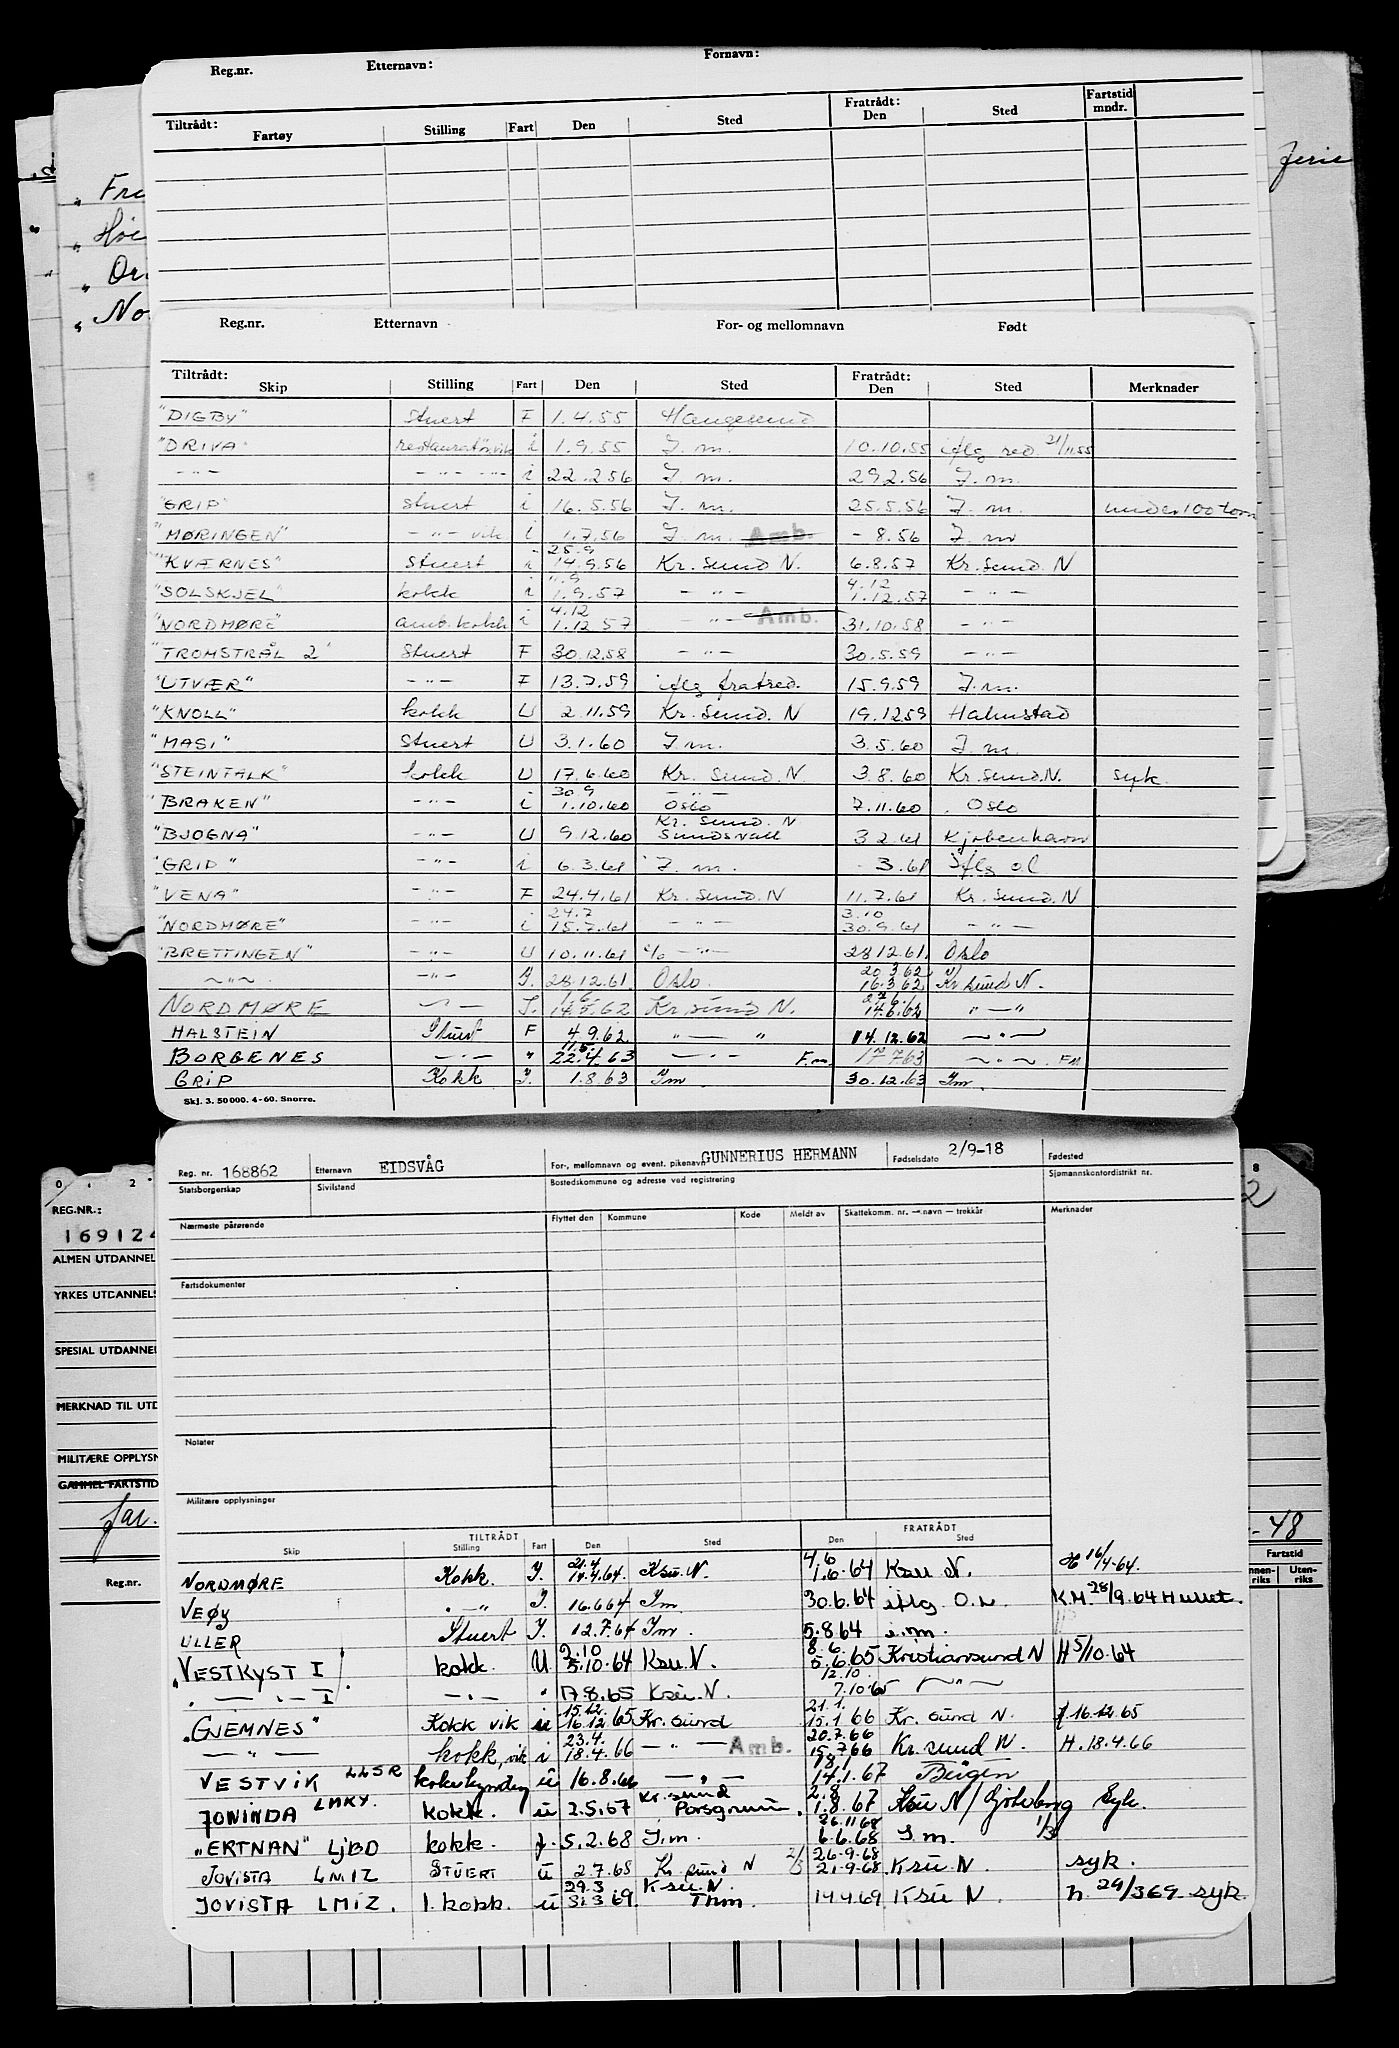 Reg.nr. Etternavn: Fornavn:
Tiltrådt: Fartøy Stilling Fart Den Sted Fratrådt: Den Sted Fartstid mndr.
" Fre
" Høi
" No
Reg.nr. Etternavn For- og mellomnavn Født
Tiltrådt: Skip Stilling Fart Den Sted Fratrådt: Den Sted Merknader
"DIGBY" Stuert F 1.4.55 Haugesund
"DRIVA" restauratør.vik i 1.9.55 I. m. 10.10.55 iflg red. 21/11.55
-"- -"- -"- i 22.2.56 I. m. 29.2.56 I. m.
"GRIP" Stuert i 16.5.56 I. m. 25.5.56 I. m. under 100 tonn
"MØRINGEN" -"- vik i 1.7.56 I. m. Amb. - 8.56 I. m
"KVÆRNES" Stuert i 25.9 14.9.56 Kr. Sund N. 6.8.57 Kr. Sund. N
"SOLSKJEL" kokk i 11.9 1.9.57 -"- 4.12 1.12.57 -"-
"NORDMØRE" amb. kokk i 4.12 1.12 57 -"- Amb. 31.10.58 -"-
"TROMSTRÅL 2" Stuert F 30.12.58 -"- 30.5.59 -"-
"UTVÆR" -"- F 13.7.59 iflg fratred. 15.9.59 I.m.
"KNOLL" kokk U 2.11.59 Kr. Sund. N 19.12.59 Halmstad
"MASI" Stuert U 3.1.60 I. m. 3.5.60 I. m
"STEINFALK" kokk U 17.6.60 Kr. Sund. N. 3.8.60 Kr. Sund. N. syk.
"BRAKEN" -"- i 30.9 1.10.60 -"- Oslo 7.11.60 Oslo
"BJOGNA" -"- U 9.12.60 Kr. Sund. N Sundsvall 3.2.61 Kjøbenhavn
"GRIP" -"- i 6.3.61 I. m. - 3.61 Iflg o.l
"VENA" -"- F 24.4.61 Kr. Sund. N 11.7.61 Kr. Sund. N
"NORDMØRE" -"- i 24.7 15.7.61 -"- 3.10 30.9.61 -"-
"BRETTINGEN" -"- U 10.11.61 -"- 28.12.61. Oslo
-"- -"- I. 28.12.61. Oslo. 20.3.62 16.3.62 Kr sund N.
NORDMØRE -"- I. 14.5.62 Kr. sund N. 27.6. 14.6.62 " - "
HALSTEIN Stuert F 4.9.62 " - " 14.12.62 -"-
BORGENES -"- " 11.5. 22.4.63 -"- F.m. 17.7.63 -"- F.m
GRIP Kokk I. 1.8.63 Im 30.12.63 Im.
Skj. 3. 50 000. 4-60. Snorre.
Reg. nr. 168862 Etternavn EIDSVÅG For-, mellomnavn og event. pikenavn GUNNERIUS HERMANN Fødselsdato 2/9-18 Fødested
Statsborgerskap Sivilstand Bostedskommune og adresse ved registrering Sjømannskontordistrikt nr.
Nærmeste pårørende Flyttet den Kommune Kode Meldt av Skattekomm. nr. — navn — trekkår Merknader
Fartsdokumenter
Notater
Militære opplysninger
TILTRÅDT FRATRÅDT
Skip Stilling Fart Den Sted Den Sted
NORDMØRE Kokk. I. 21.4 14.4.64. Ksu. N. 4.6 1.6.64 Ksu N. H 16/4-64.
VEØY -"- I. 16.6.64 Im 30.6.64 iflg. O.L K.M. 28/9.64 Hullet.
ULLER Stuert I. 12.7.64 Im. 5.8.64 i.m.
"VESTKYST I kokk. U 9.10 5.10.64 Ksu. N. 8.6. 5.6.65 Kristiansund N H 5/10-64
" - " - I -"- " 17.8.65 Ksu. N. 12.10. 7.10.65 -"-
"GJEMNES" Kokk vik u 15.12. 16.12.65 Kr. sund 21.1. 15.1.66 Kr. sund N. 16.12.65
-"- kokk, vik i 23.4. 18.4.66 -"- Amb. 20.7.66 15.7.66 Kr. sund N. H. 18.4.66
VESTVIK LLSR u 16.8.66 -"- 18.1 14.1.67 Bergen
JONINDA LMKY. kokk. u 2.5.67 Kr. sund Porsgrunn. 2.8 1.8.67 Ksu N/Göteborg Syk.
"ERTNAN" LJBD kokk. 5.2.68 I.m. 6.6.68 I.m.
JOVISTA LMIZ STUERT u 2.7.68 Kr sund N 26.9.68 21.9.68 Ksu. N. syk.
JOVISTA LMIZ. 1. kokk. u 29.3 31.3.69. Ksu. N. Thm. 14.4.69 Ksu N. h. 29/3 69 syk
REG.NR.:
16912
ALMEN UTDANNEL
YRKES UTDANNELS
SPESIAL UTDANNEL
MERKNAD TIL UTD
MILITÆRE OPPLYSN
GAMMEL FARTSTID
Jar.
Reg.nr.
8
2
- 48
Fartstid
nnen-riks Uten-riks